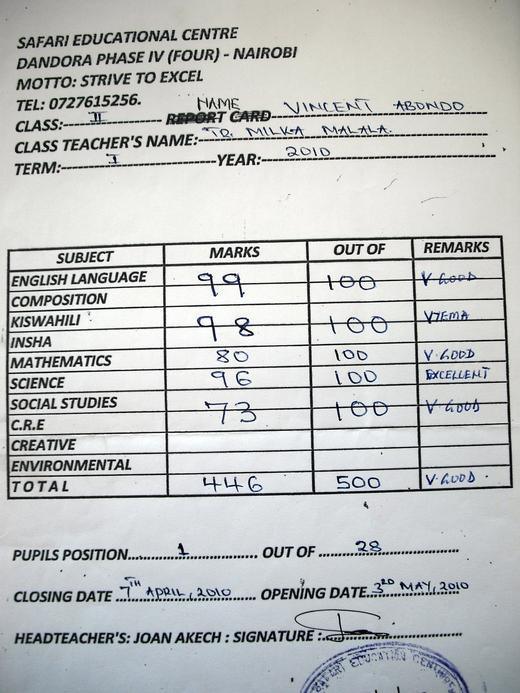 SAFARI EDUCATIONAL CENTRE
DANDORA PHASE IV (FOUR) - NAIROBI
MOTTO: STRIVE TO EXCEL
TEL: 0727615256.
CLASS: II REPORT CARD NAME VINCENT ABONDO
CLASS TEACHER'S NAME: TR. MILKA MALALA.
TERM: I YEAR: 2010
SUBJECT MARKS OUT OF REMARKS
ENGLISH LANGUAGE 99 100 V GOOD
COMPOSITION
KISWAHILI 98 100 VYEMA
INSHA
MATHEMATICS 80 100 V. GOOD
SCIENCE 96 100 EXCELLENT
SOCIAL STUDIES 73 100 V GOOD
C.R.E
CREATIVE
ENVIRONMENTAL
TOTAL 446 500 V. GOOD.
PUPILS POSITION 1 OUT OF 28
CLOSING DATE 7TH APRIL, 2010 OPENING DATE 3RD MAY, 2010
HEADTEACHER'S: JOAN AKECH : SIGNATURE :
SAFARI EDUCATION CENTRE